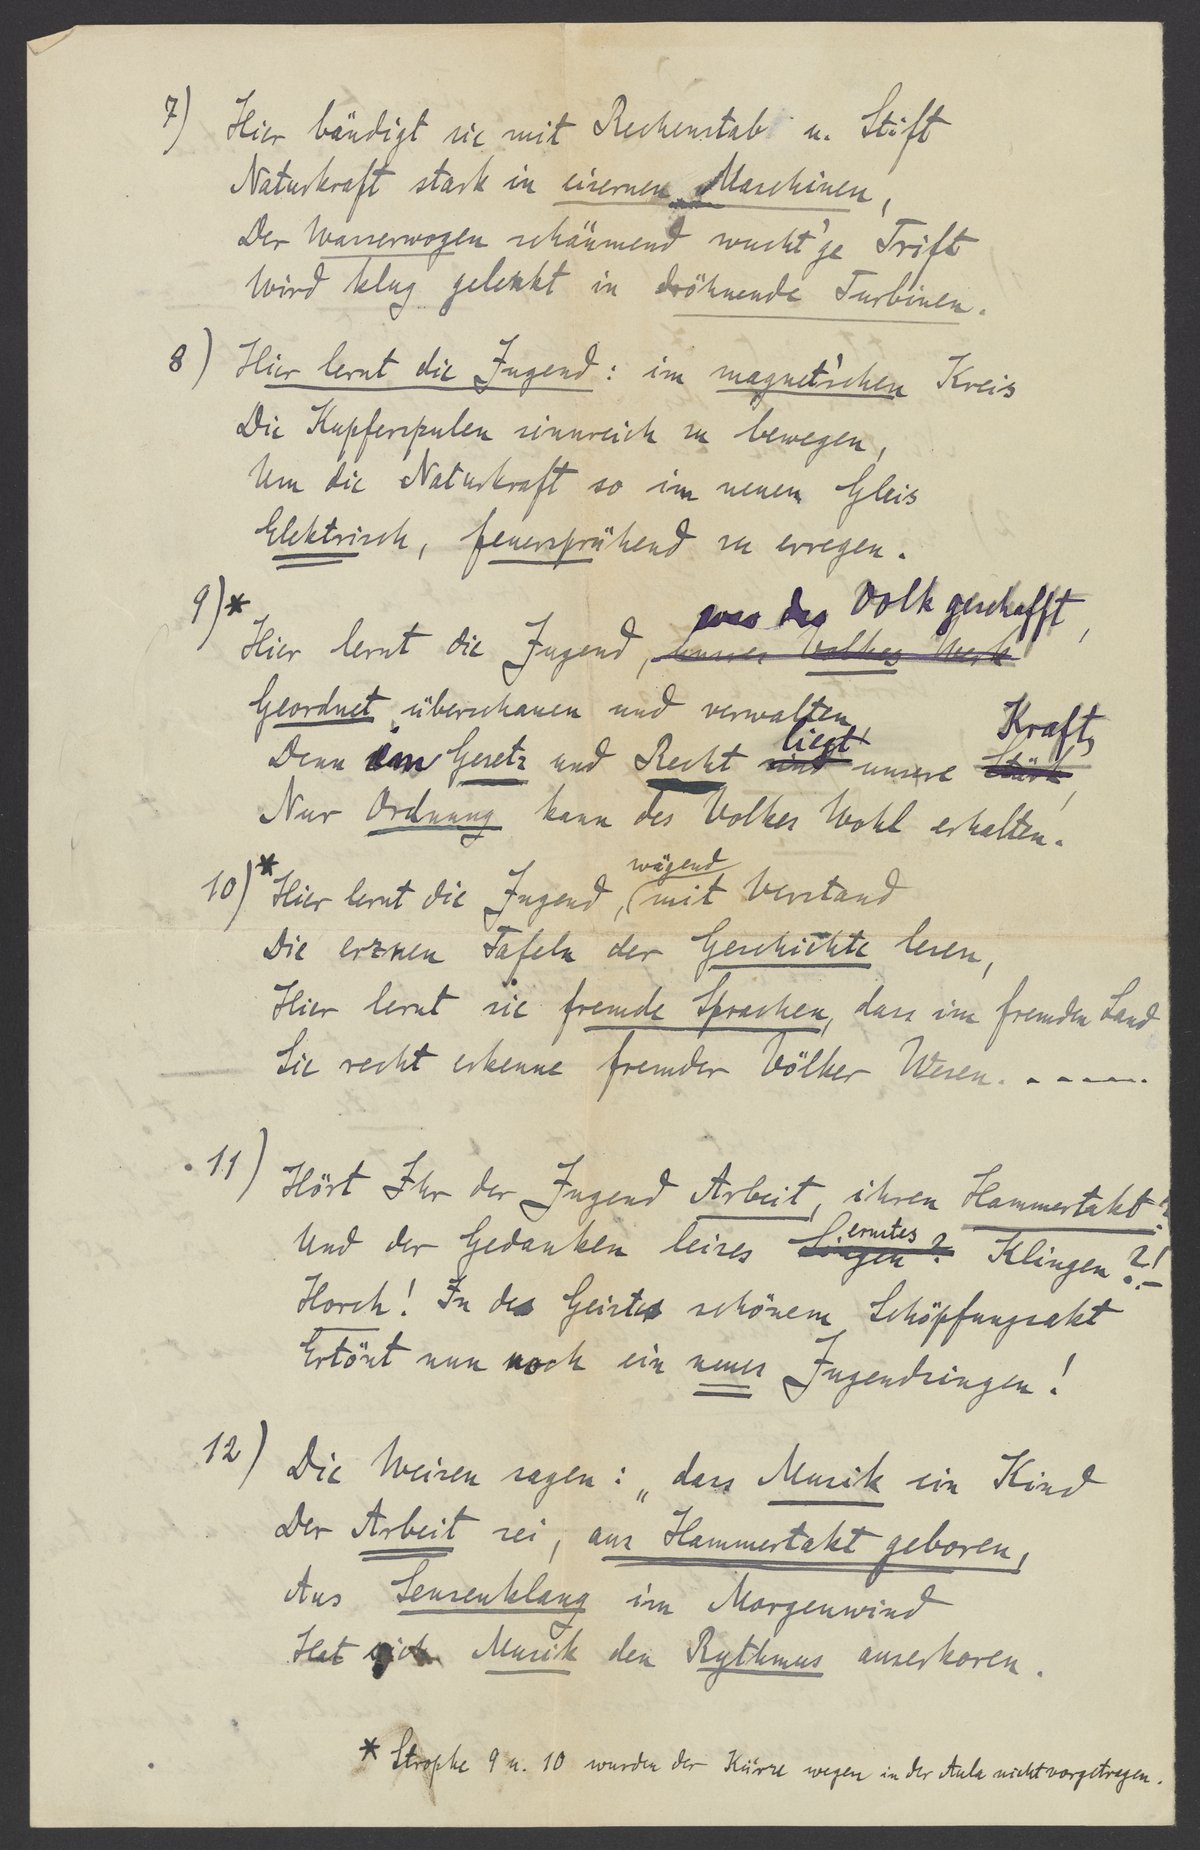 7) Hier bändigt sie mit Rechenstab u. Stift
Naturkraft stark in eisernen Maschinen,
Der Wasserwogen schäumend wucht'ge Trift
Wird klug gelenkt in dröhnende Turbinen.
8) Hier lernt die Jugend: im magnet'schen Kreis
Die Kupferspulen sinnreich zu bewegen,
Um die Naturkraft so im neuen Gleis
Elektrisch, feuersprühend zu erregen.
9)* was das Volk geschafft,
Hier lernt die Jugend, unsres Volkes Werk
Geordnet überschauen und verwalten,
liegt Kraft,
Denn im Gesetz und Recht sind unsere Stärk,
Nur Ordnung kann des Volkes Wohl erhalten.
wägend
10)* Hier lernt die Jugend, (mit Verstand
Die erznen Tafeln der Geschichte lesen,
Hier lernt sie fremde Sprachen, dass im fremden Land
Sie recht erkenne fremder Völker Wesen. . - - - - -
11) Hört Ihr der Jugend Arbeit, ihren Hammertakt?
ernstes
Und der Gedanken leises Singen? Klingen?!-
Horch! In des Geistes schönem Schöpfungsakt
Ertönt nun noch ein neues Jugendsingen!
12) Die Weisen sagen: „dass Musik ein Kind
Der Arbeit sei, aus Hammertakt geboren,
Aus Sensenklang im Morgenwind
Hat sich Musik den Rythmus auserkoren.
* Strophe 9 u. 10 wurden der Kürze wegen in der Aula nicht vorgetragen.